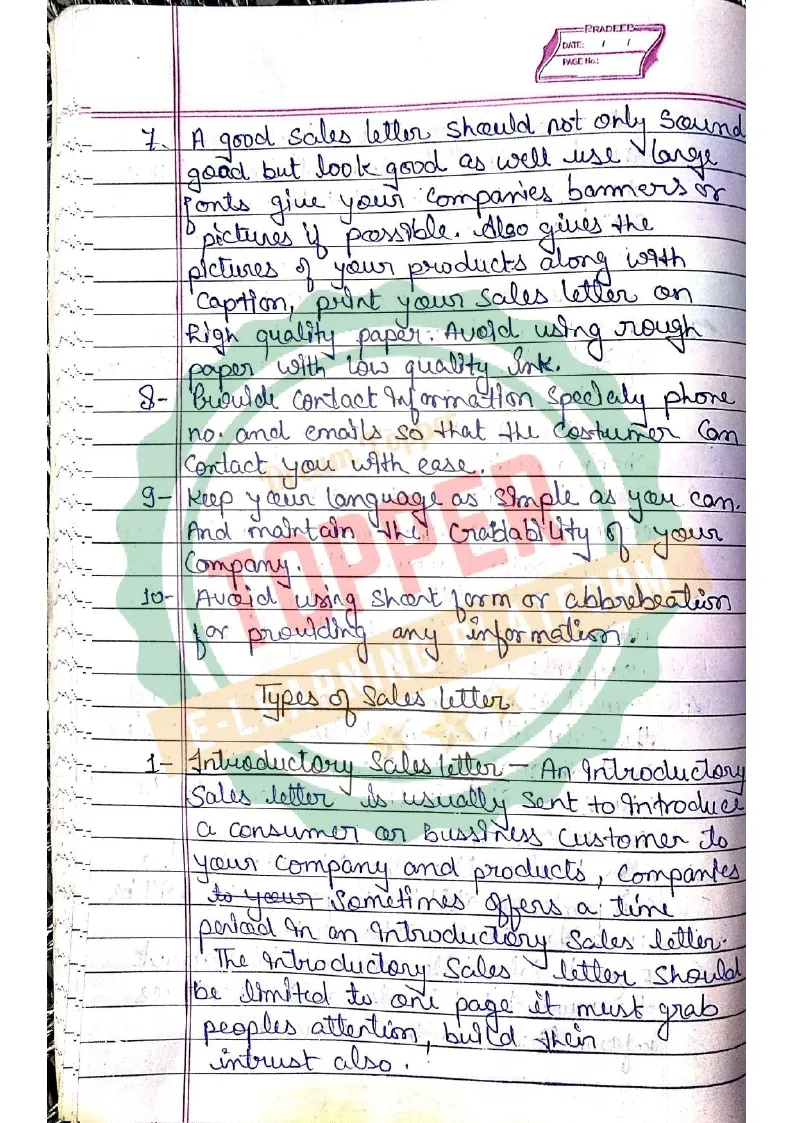 PRADEEP
DATE: / /
PAGE No.:
7. A good sales letter should not only sound
good but look good as well use large
fonts give your companies banners or
pictures if possible. Also gives the
pictures of your products along with
caption, print your sales letter on
high quality paper. Avoid using rough
paper with low quality ink.
8- Provide contact information specialy phone
no. and emails so that the costumer can
contact you with ease.
9- Keep your language as simple as you can.
And maintain the cradability of your
company.
10- Avoid using short form or abbrebeation
for providing any information.
Types of Sales letter
1- Introductory Sales letter - An introductory
Sales letter is usually sent to introduce
a consumer or bussiness customer to
your company and products, companies
to your sometimes offers a time
period in an introductory sales letter.
The introductory sales letter should
be limited to one page it must grab
peoples attention, build their
intrust also.
Dream Topper
TOPPER
E-LEARNING PLATFORM